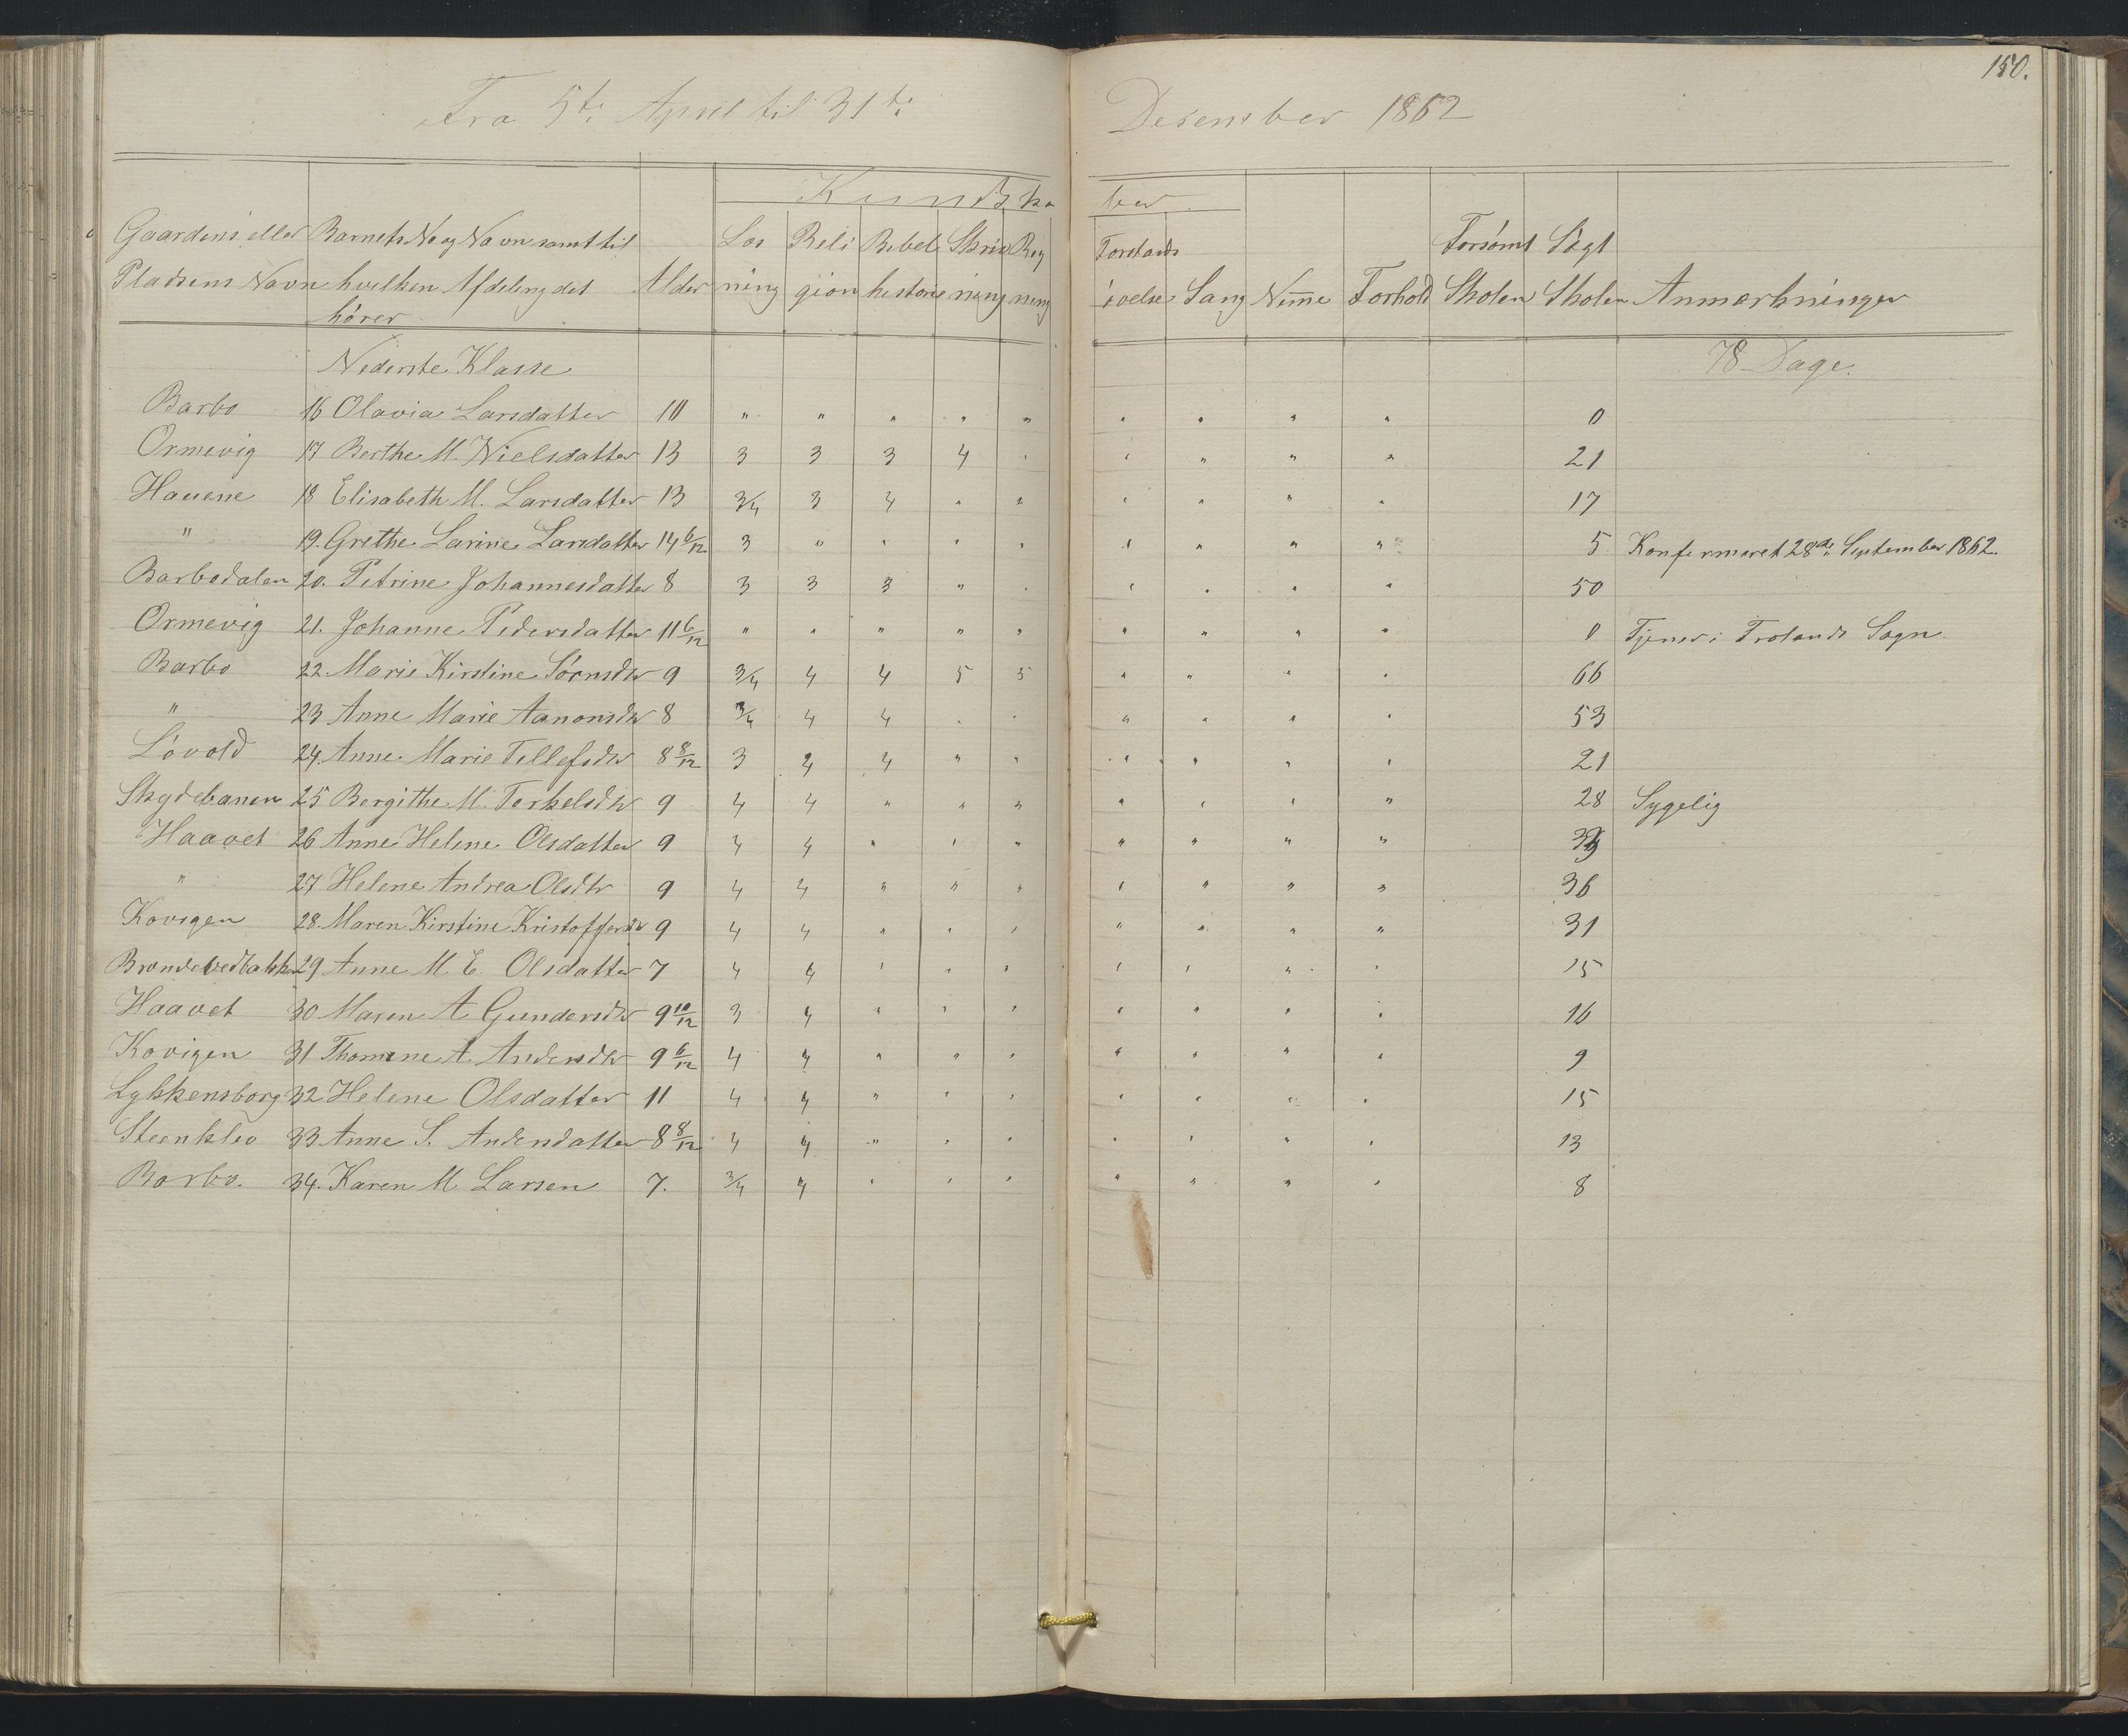 150.
Fra 5te April til 31te Desember 1862
Kundskaber
Gaardens eller Barnets No og Navn samt til Læs Reli Bibel Skriv Reg Forstands Forsømt Søgt
Pladsens Navn hvilken Afdeling det Alder ning gion historie ning ning øvelse Sang Nemme Forhold Skolen Skolen Anmærkninger
hører
Nederste Klasse 78 Dage.
Barbo 16 Olavia Larsdatter 10 " " " " " " " " " 0
Ormevig 17 Berthe M. Nielsdatter 13 3 3 3 4 " " " " " 21
Hauene 18 Elisabeth M. Larsdatter 13 3/4 3 4 " " " " " " 17
" 19. Grethe Larine Larsdatter 14 6/12 3 " " " " " " " " 5 Konfirmeret 28de September 1862.
Barbodalen 20. Petrine Johannesdatter 8 3 3 3 " " " " " " 50
Ormevig 21. Johanne Pedersdatter 11 6/12 " " " " " " " " " 0 Tjener i Trolands Sogn
Barbo 22 Marie Kirstine Sørnsdtr 9 3/4 4 4 5 5 " " " " 66
" 23 Anne Marie Aanonsdtr 8 3/4 4 4 " " " " " " 53
Løvold 24. Anne Marie Tellefsdtr 8 8/12 3 4 4 " " " " " " 21
Skydebanen 25 Bergithe M. Terkelsdtr 9 4 4 " " " " " " " 28 Sygelig
Haavet 26 Anne Helene Olsdatter 9 4 4 " " " " " " "
" 27 Helene Andrea Olsdtr 9 4 4 " " " " " " " 36
Kovigen 28. Maren Kirstine Kristoffersdtr 9 4 4 " " " " " " " 31
29 Anne M. E. Olsdatter 7 4 4 " " " " " " " 15
Haavet 30 Maren A Gundersdtr 9 10/12 3 4 " " " " " " " 16
Kovigen 31 Thomine A. Andersdtr 9 6/12 4 4 " " " " " " " 9
Lykkensborg 32 Helene Olsdatter 11 4 4 " " " " " " " 15
Steenklev 33 Anne S. Andersdatter 8 8/12 4 4 " " " " " " " 13
Barbo. 34. Karen M. Larsen 7. 3/4 4 " " " " " " " 8